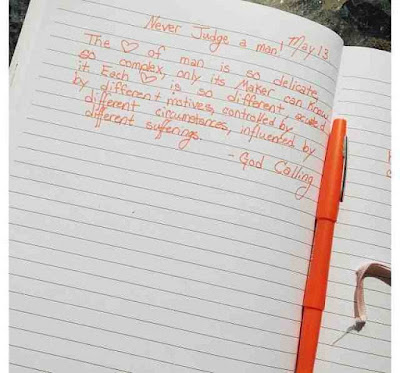 Never Judge a man! May 13
The ♡ of man is so delicate,
so complex, only its Maker can know
it. Each ♡ is so different, actuated
by different motives, controlled by
different circumstances, influenced by
different sufferings.
- God Calling